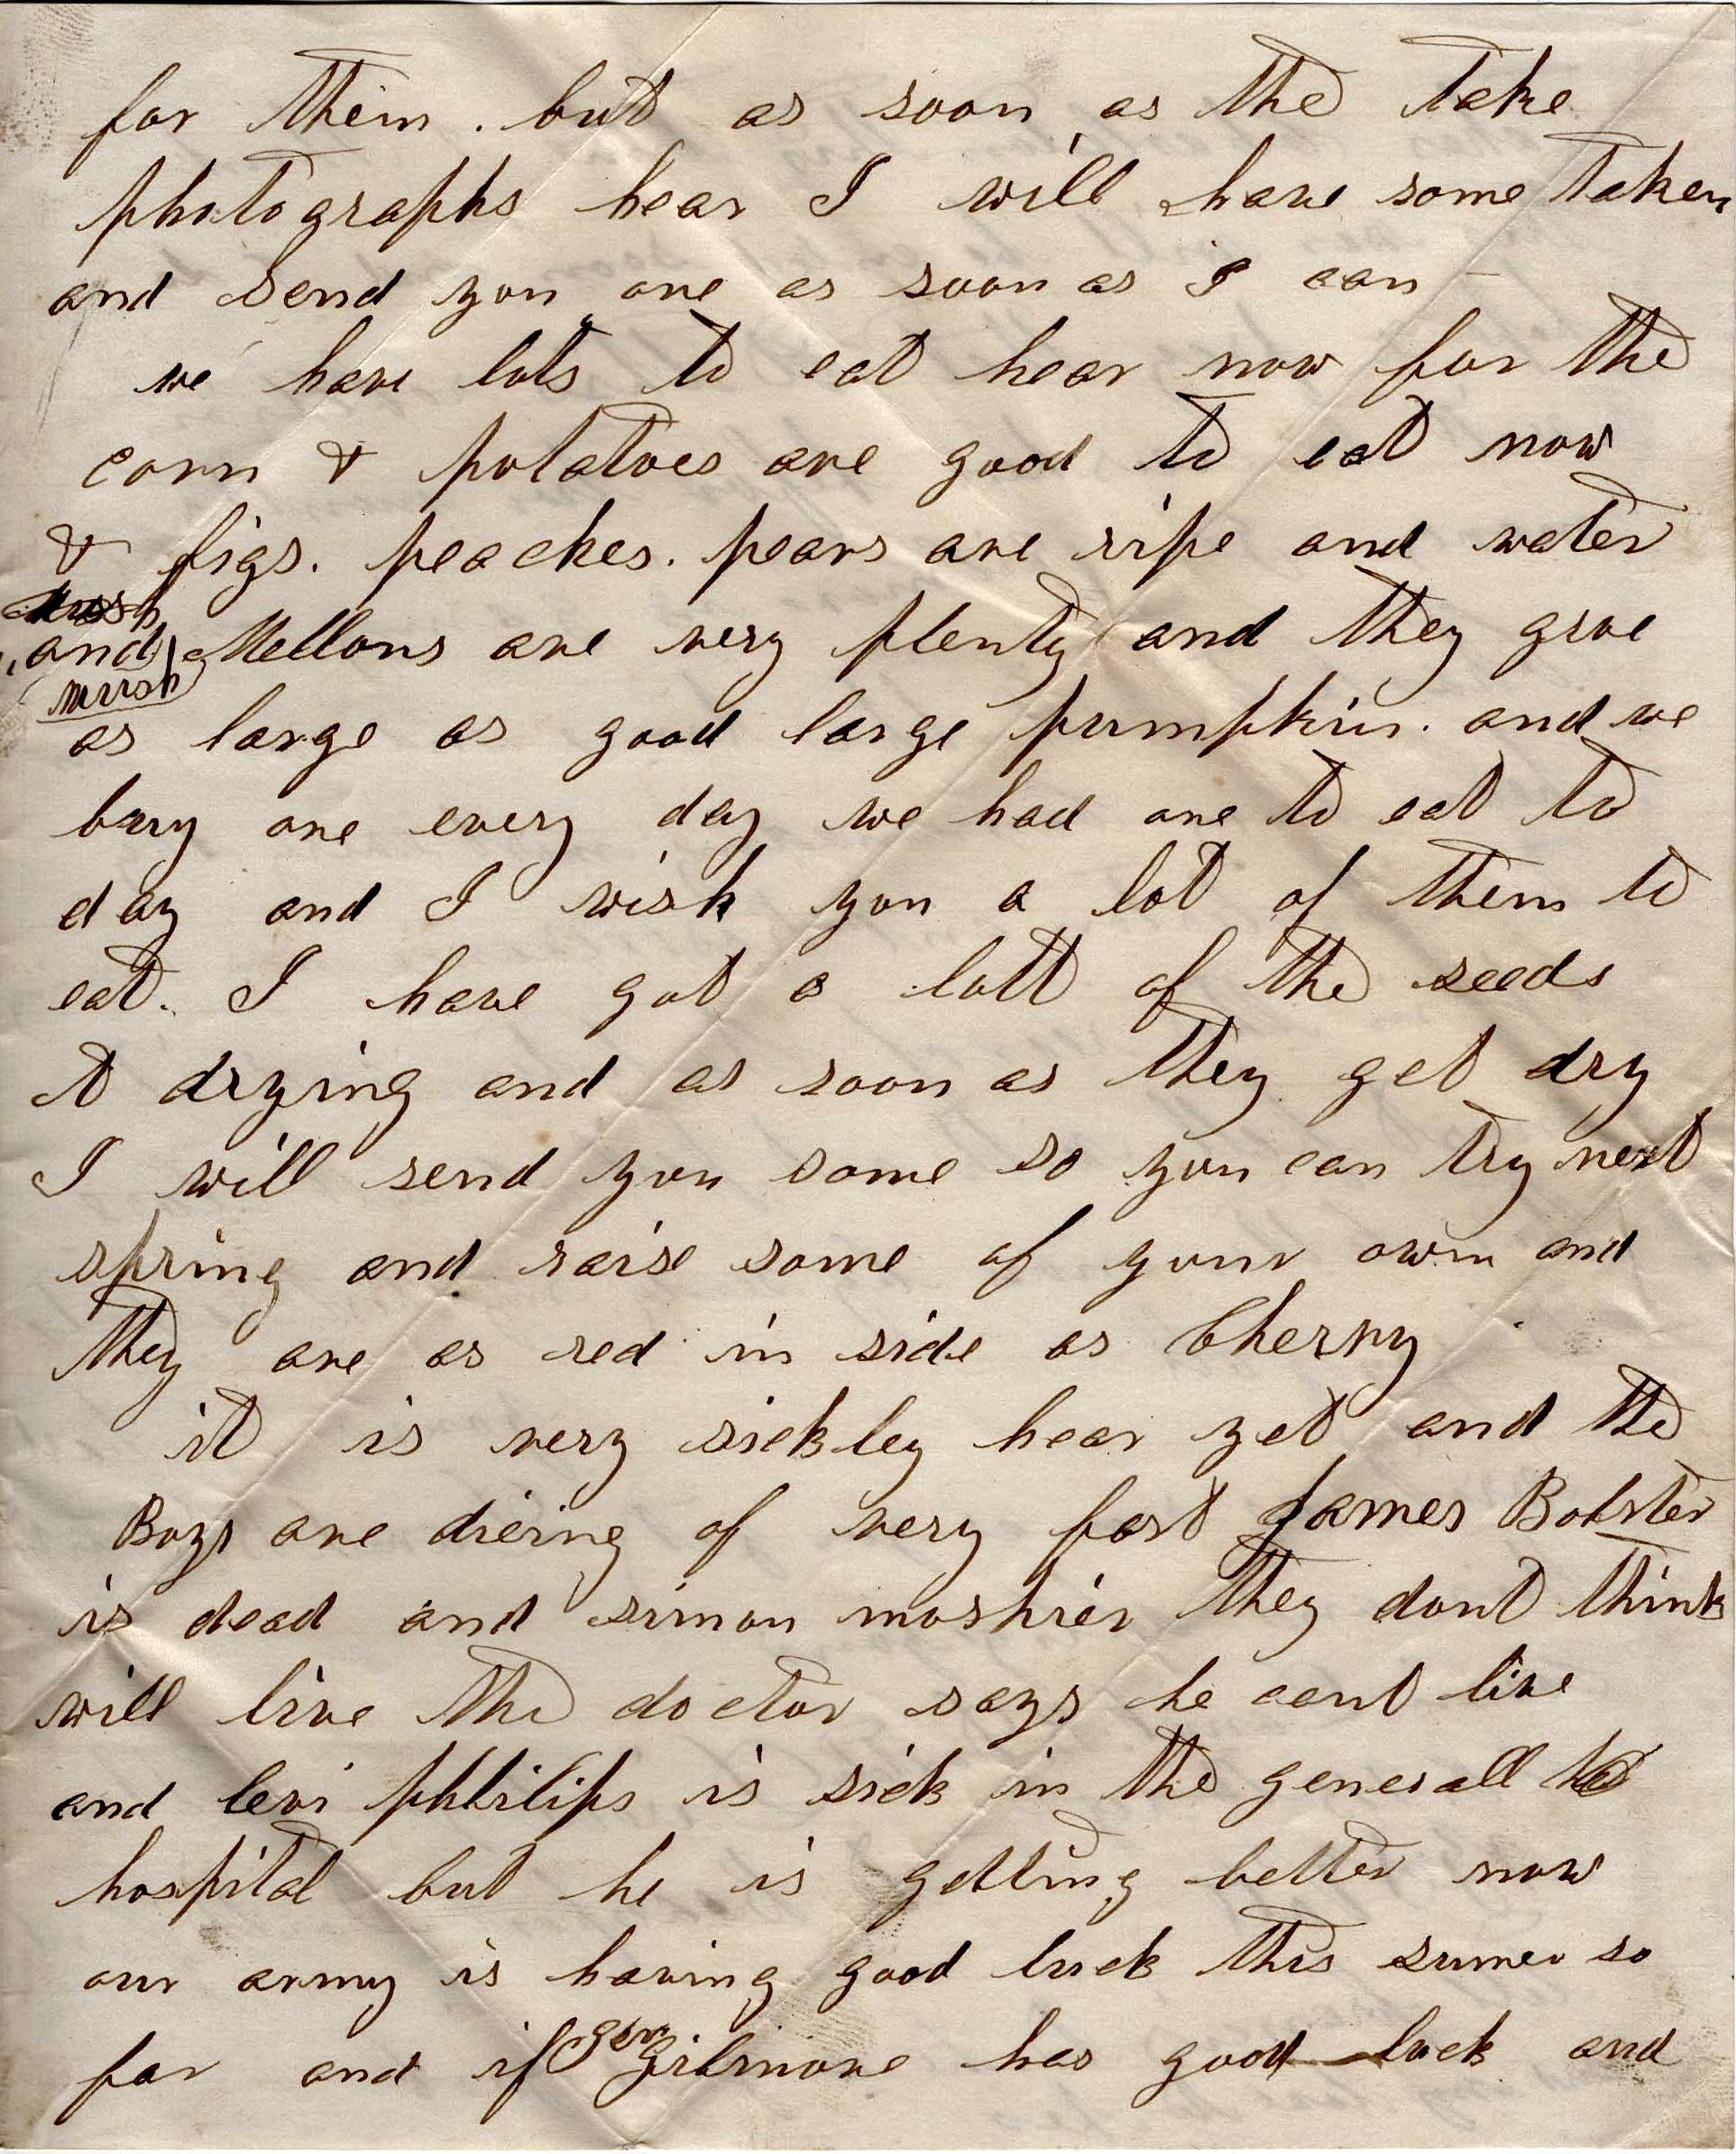 for them . but as soon as the take
photographs hear I will have some taken
and send you one as soon as I can
we have lots to eat hear now for the
corn & potatoes are good to eat now
& figs. peaches. pears are ripe and water
mush
and Mellons are very plenty and they grve
mush
as large as good large pumpkin. and we
buy one every day we had one to eat to
day and I wish you a lot of them to
eat. I have got a lott of the seeds
t drying and as soon as they get dry
I will send you some so you can try next
spring and raise some of your own and
they are as red in side as Cherry
it is very sickley hear yet and the
Boys are dieing of very fast James Bolster
is dead and simon moshier they dont think
will live the doctor says he cant live
and levi philips is sick in the generall
hospital but he is getting better now
our army is having good luck this sumer so
far and if gen gilmore has good luck and